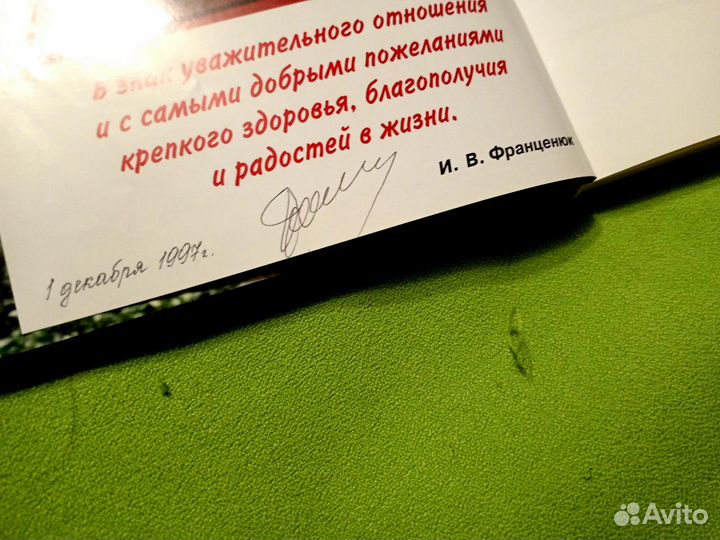 В знак уважительного отношения
и с самыми добрыми пожеланиями
крепкого здоровья, благополучия
и радостей в жизни.
И. В. Франценюк
1 декабря 1997г.
Avito